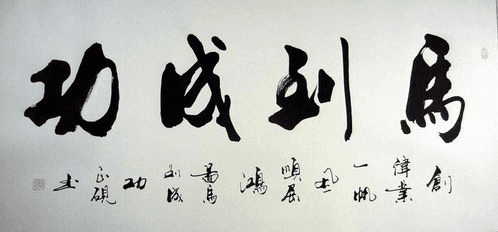 馬到成功
創偉業一帆風順展鴻圖馬到成功
硯書